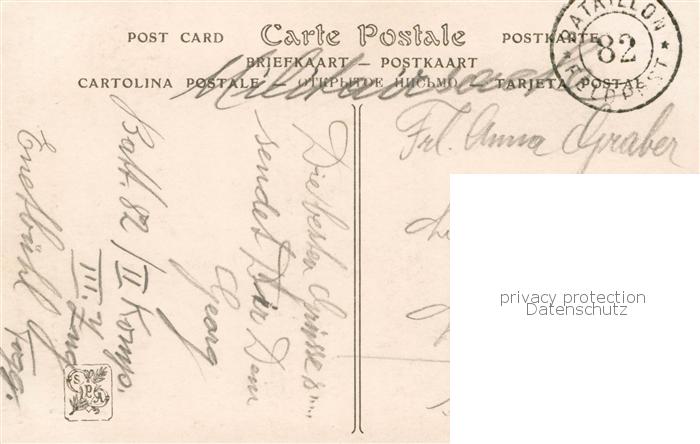 POST CARD Carte Postale POSTKARTE
BRIEFKAART — POSTKAART
CARTOLINA POSTALE — ОТКРЫТОЕ ПИСЬМО — TARJETA POSTAL
BATAILLON
82
* FELDPOST *
Militärsache
Frl. Anna Graber
Die besten Grüsse
sendet Dir Dein
Georg
Batt. 82 / II Komp.
III.
SPA
privacy protection
Datenschutz